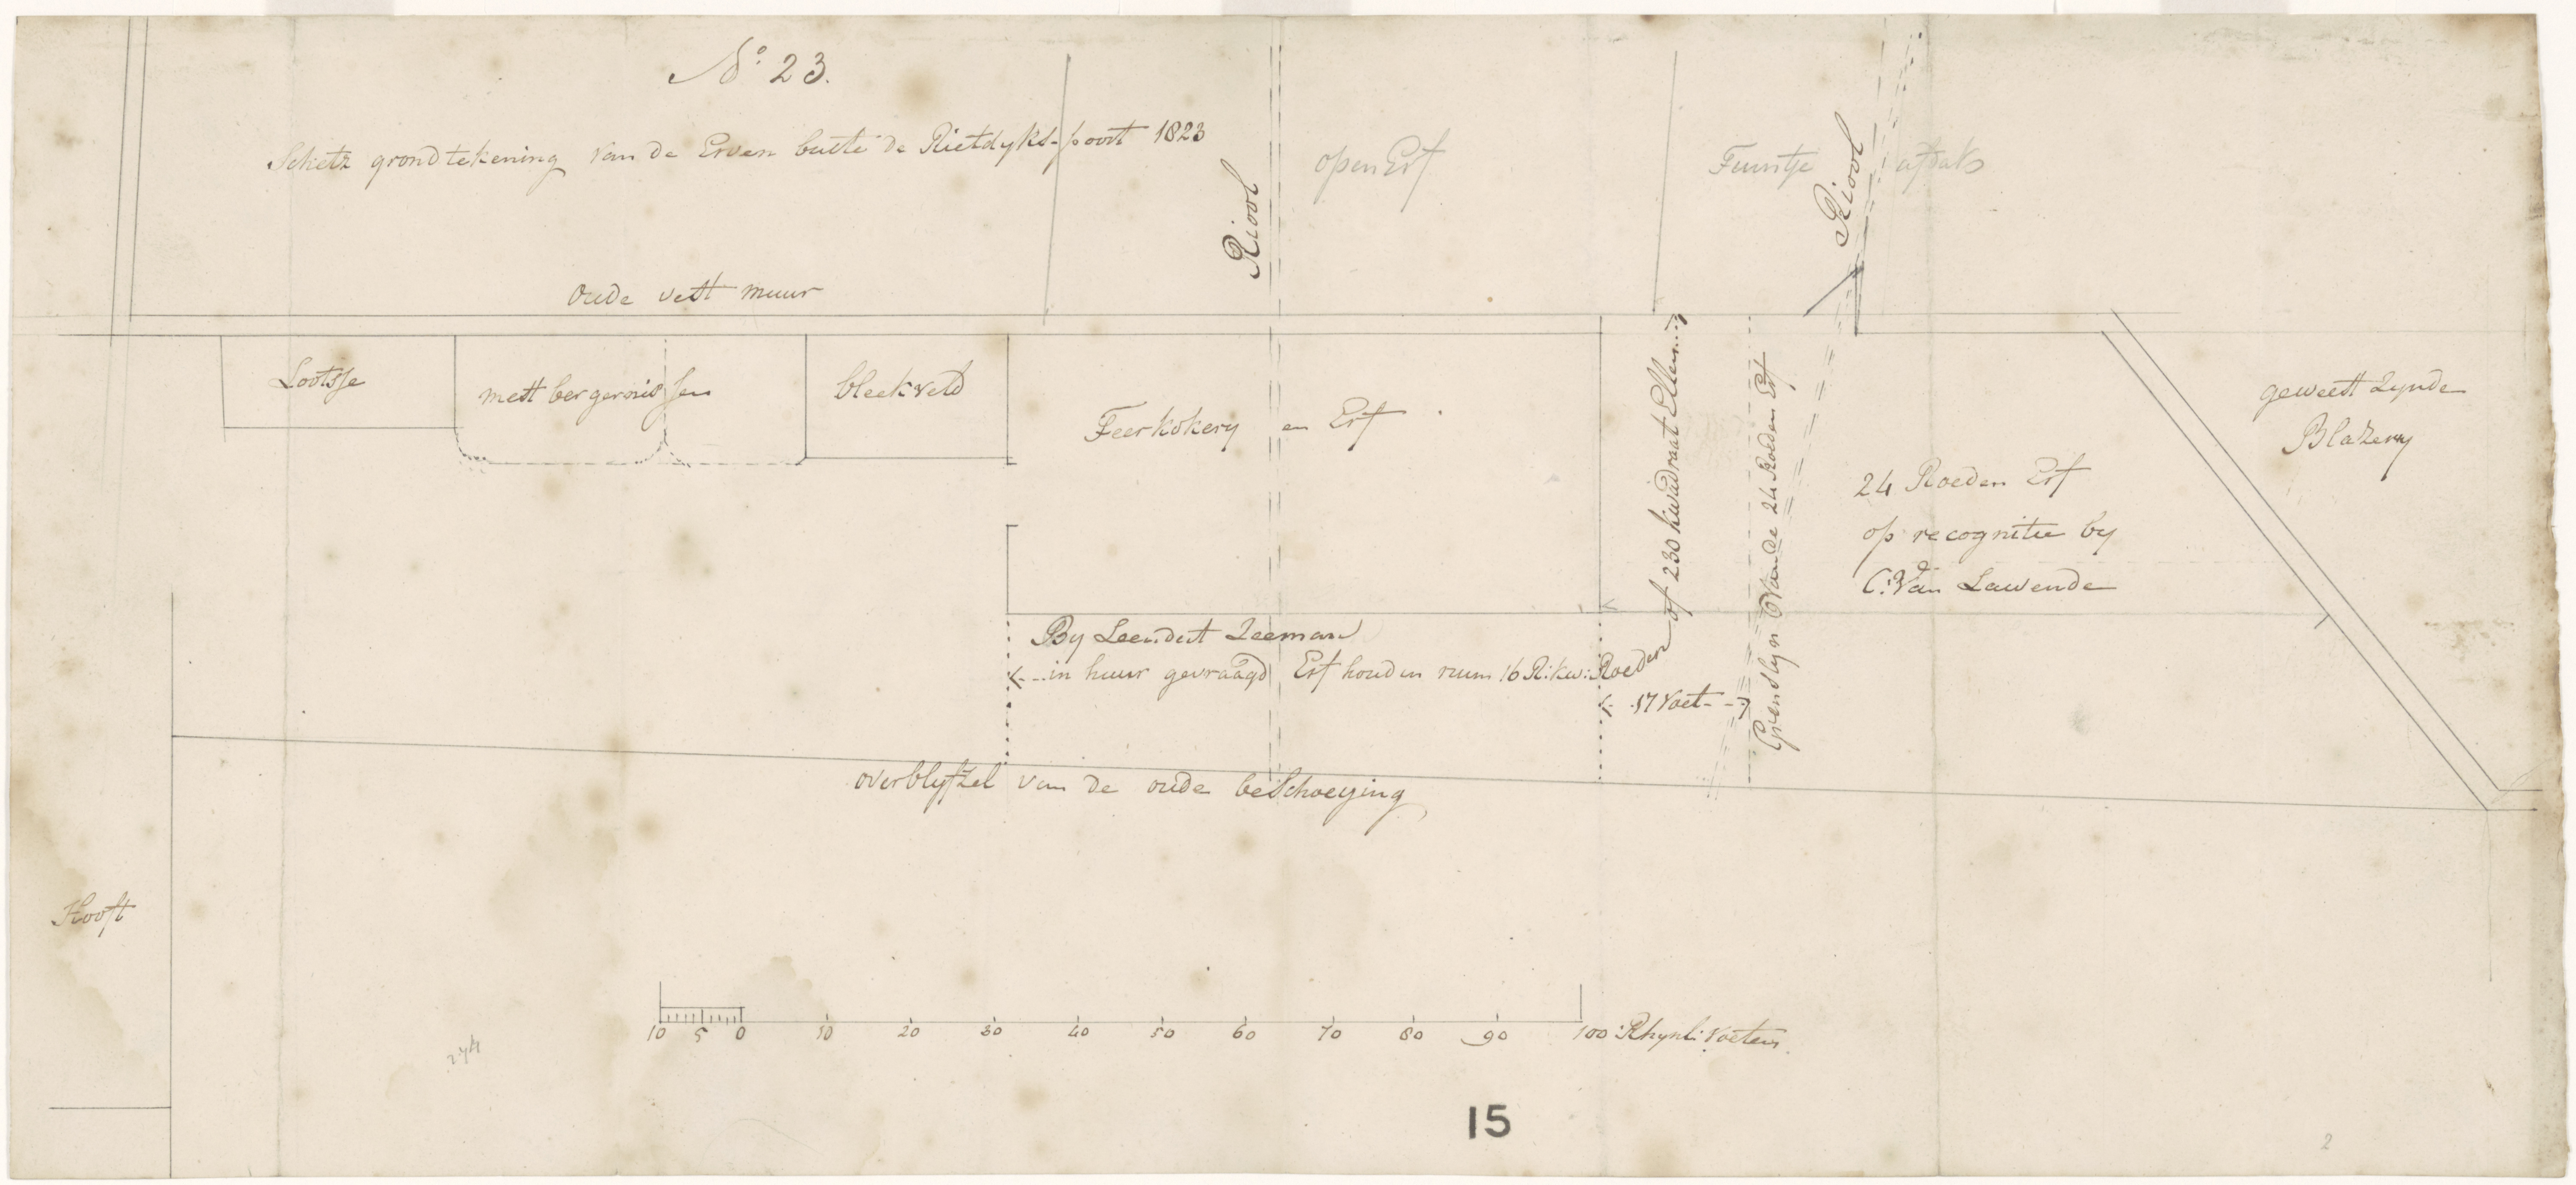 No. 23.
Schetz grondtekening van de Erven buite de Rietdyks-poort 1823
Riool
open Erf
Riool
oude vest muur
Lootsje
mest bergernissen
bleekveld
Teerkokery en Erf
geweest zynde
Blazery
24 Roeden Erf
op recognitie by
C: Van Lawende
By Leendert Zeeman
in huur gevraagd Erf houden ruim 16 R: kw: Roeden of 230 kwadraat Ellen
17 voet
Grenslyn Van de 24 Roeden Erf
overblyfzel van de oude beschoeying
Hooft
10 5 0 10 20 30 40 50 60 70 80 90 100 Rhynl: voeten
15
2